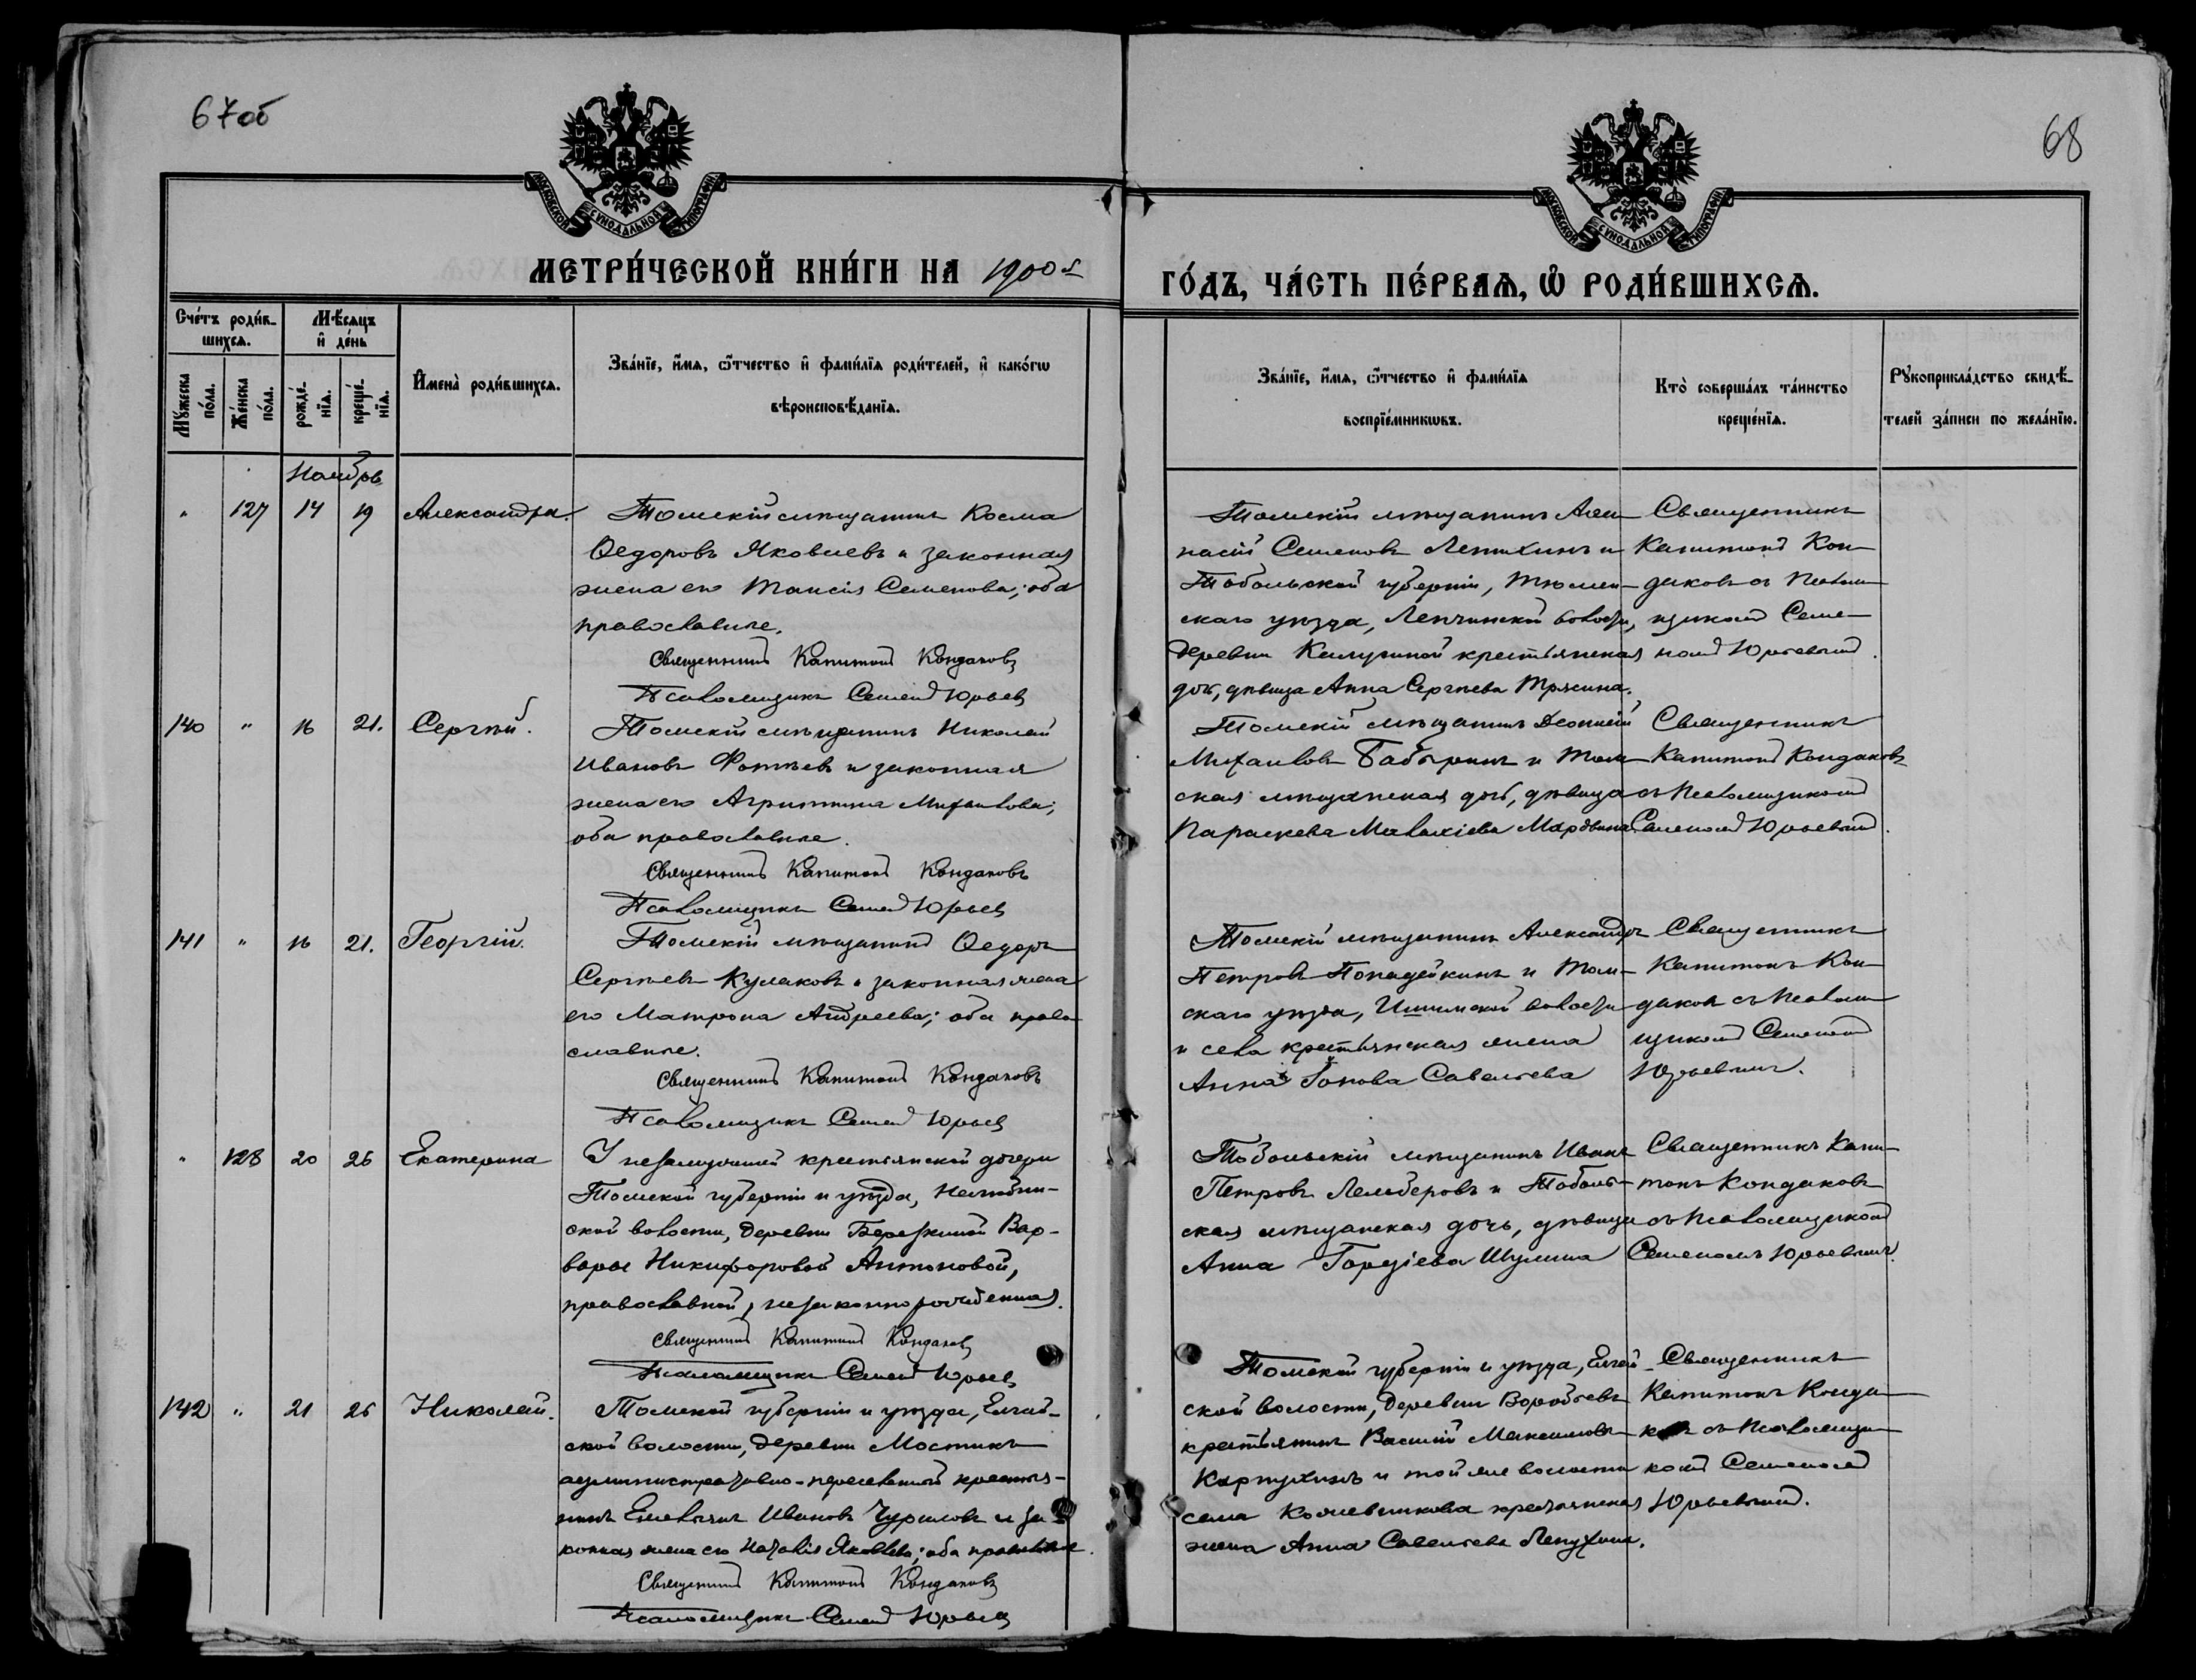 67об
68
МОСКОВСКОЙ СѴНОДАЛЬНОЙ ТИПОГРАФІИ
МОСКОВСКОЙ СѴНОДАЛЬНОЙ ТИПОГРАФІИ
МЕТРИ́ЧЕСКОЙ КНИ́ГИ НА 1900 г
ГО́ДЪ, ЧА́СТЬ ПЕ́РВАѦ, Ѽ РОДИ́ВШИХСѦ.
Сче́тъ роди́в-
шихсѧ.
Мѣ́сѧцъ
и҆ де́нь
Мꙋжеска по́ла.
Же́нска по́ла.
рожде́-
нїѧ.
креще́-
нїѧ.
И҆мена̀ роди́вшихсѧ.
Зва́нїе, и҆́мѧ, ѻ҆́тчество и҆ фами́лїѧ роди́телей, и҆ како́гѡ
вѣроисповѣ́данїѧ.
Зва́нїе, и҆́мѧ, ѻ҆́тчество и҆ фами́лїѧ
воспрїе́мникѡвъ.
Кто̀ соверша́лъ та́инство
креще́нїѧ.
Рꙋкоприкла́дство свидѣ́-
телей за́писи по жела́нїю.
Ноябрь
" 127 14 19 Александра.
Томскій мѣщанинъ Косма
Ѳедоровъ Яковлевъ и законная
жена его Таисія Семенова; оба
православные.
Священникъ Капитонъ Кондаковъ
Псаломщикъ Семенъ Юрьевъ
Томскій мѣщанинъ
Семеновъ Лепихинъ и
Тобольской губерніи, Тюмен-
скаго уѣзда, волости,
деревни крестьянская
дочь, дѣвица Анна Сергѣева
Священникъ
Капитонъ Кон-
даковъ съ Псалом-
щикомъ Семе-
номъ Юрьевымъ.
140 " 16 21. Сергѣй.
Томскій мѣщанинъ Николай
Ивановъ Фотѣевъ и законная
жена его Агриппина Михаилова;
оба православные.
Священникъ Капитонъ Кондаковъ
Псаломщикъ Семенъ Юрьевъ
Томскій мѣщанинъ
Михаиловъ и Том-
ская мѣщанская дочь, дѣвица
Параскева Малахіева
Священникъ
Капитонъ Кондаковъ
съ Псаломщикомъ
Семеномъ Юрьевымъ.
141 " 16 21. Георгій.
Томскій мѣщанинъ Ѳедоръ
Сергѣевъ Кулаковъ и законная жена
его Матрона Андреева; оба право-
славные.
Священникъ Капитонъ Кондаковъ
Псаломщикъ Семенъ Юрьевъ
Томскій мѣщанинъ Александръ
Петровъ Попадейкинъ и Том-
скаго уѣзда, Ишимской волости
и села крестьянская жена
Анна Савельева
Священникъ
Капитонъ Кон-
даковъ съ Псалом-
щикомъ Семеномъ
Юрьевымъ.
" 128 20 26 Екатерина
У незамужней крестьянской дочери
Томской губерніи и уѣзда, Нелюбин-
ской волости, деревни Березкиной Вар-
вары Никифоровой Антоновой,
православной, незаконнорожденная.
Священникъ Капитонъ Кондаковъ
Псаломщикъ Семенъ Юрьевъ
Тобольскій мѣщанинъ Иванъ
Петровъ и Тоболь-
ская мѣщанская дочь, дѣвица
Анна Гордіева
Священникъ Капи-
тонъ Кондаковъ
съ Псаломщикомъ
Семеномъ Юрьевымъ.
142 " 21 26 Николай.
Томской губерніи и уѣзда, Елгай-
ской волости, деревни Мостикъ
административно-переселенный крестья-
нинъ Ивановъ Чуриловъ и за-
конная жена его Наталія Яковлева; оба православные.
Священникъ Капитонъ Кондаковъ
Псаломщикъ Семенъ Юрьевъ
Томской губерніи и уѣзда, Елгай-
ской волости, деревни Воробьевой
крестьянинъ Василій Максимовъ
Карпухинъ и той же волости
села Кожевникова крестьянская
жена Анна Савельева
Священникъ
Капитонъ Конда-
ковъ съ Псаломщи-
комъ Семеномъ
Юрьевымъ.